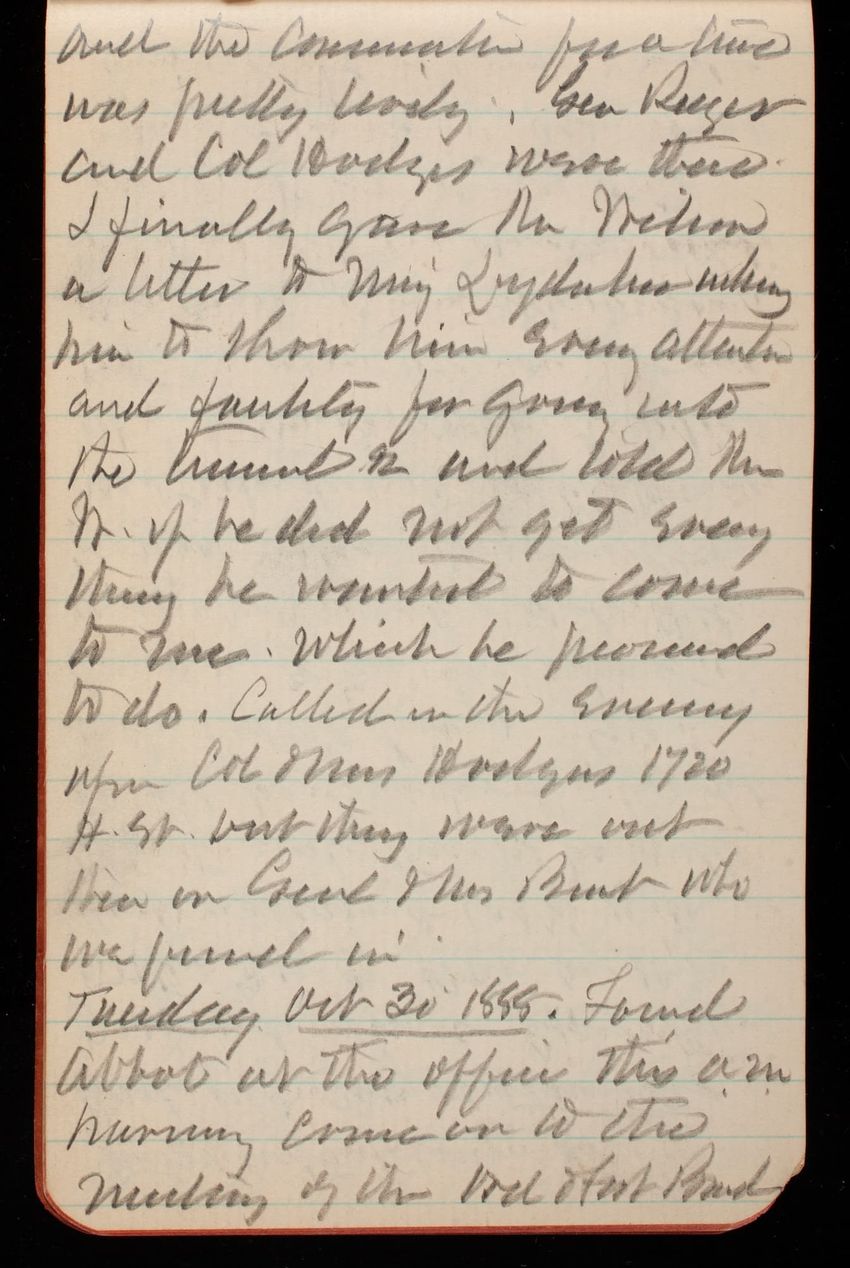 and the conversation for a time
was pretty lively. Gen Ruger
and Col Hodges were there.
I finally gave Mr Wilson
a letter to Maj Lydecker asking
him to show him every attention
and facility for going into
the tunnel & and told Mr
W. if he did not get every
thing he wanted to come
to me. Which he promised
to do. Called in the evening
upon Col & Mrs Hodges 1720
H. St. but they were out
then on Genl & Mrs Benet who
we found in.
Tuesday Oct 30 1888. Found
Abbot at the office this a.m
having come on to the
meeting of the Bd of Board